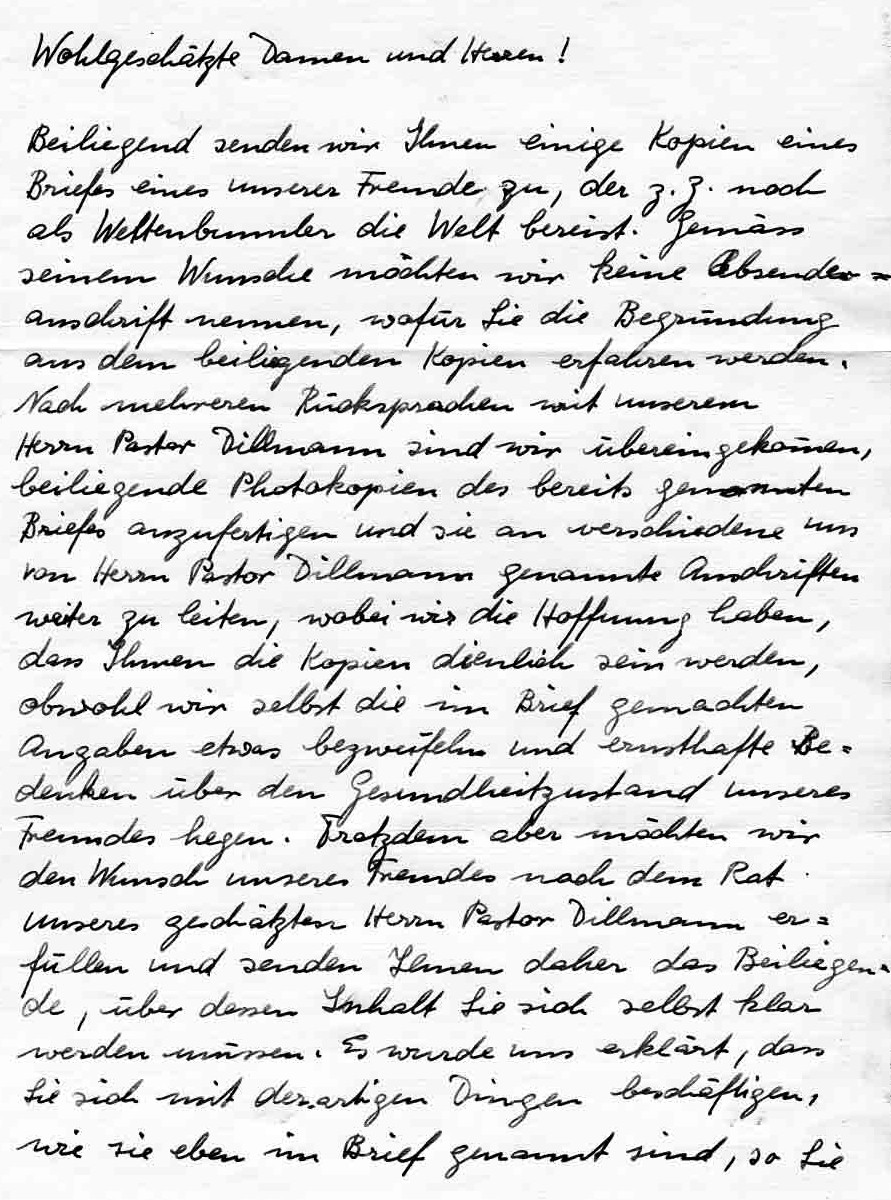 Wohlgeschätzte Damen und Herren!
Beiliegend senden wir Ihnen einige Kopien eines
Briefes eines unserer Freunde zu, der z. Z. noch
als Weltenbummler die Welt bereist. Gemäss
seinem Wunsche möchten wir keine Absender=
anschrift nennen, wofür Sie die Begründung
aus dem beiliegenden Kopien erfahren werden.
Nach mehreren Rücksprachen mit unserem
Herrn Pastor Dillmann sind wir übereingekom̄en,
beiliegende Photokopien des bereits genannten
Briefes anzufertigen und sie an verschiedene uns
von Herrn Pastor Dillmann genannte Anschriften
weiter zu leiten, wobei wir die Hoffnung haben,
dass Ihnen die Kopien dienlich sein werden,
obwohl wir selbst die im Brief gemachten
Angaben etwas bezweifeln und ernsthafte Be=
denken über den Gesundheitzustand unseres
Freundes hegen. Trotzdem aber möchten wir
den Wunsch unseres Freundes nach dem Rat
unseres geschätzten Herrn Pastor Dillmann er=
füllen und senden Ihnen daher das Beiliegen=
de, über dessen Inhalt Sie sich selbst klar
werden müssen. Es wurde uns erklärt, dass
Sie sich mit derartigen Dingen beschäftigen,
wie sie eben im Brief genannt sind, so Sie